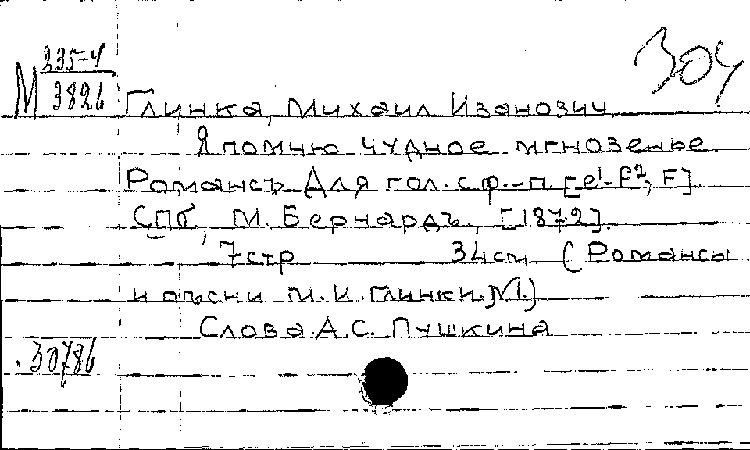 304
М 235-4
3826
Глинка, Михаил Иванович
Я помню чудное мгновенье
Романсъ Для гол. с ф.-п. [e¹-f², F]
СПб, М. Бернардъ, [1872].
7 стр 34 см (Романсы
и пѣсни М. И. Глинки. №1.)
Слова А.С. Пушкина
.30786